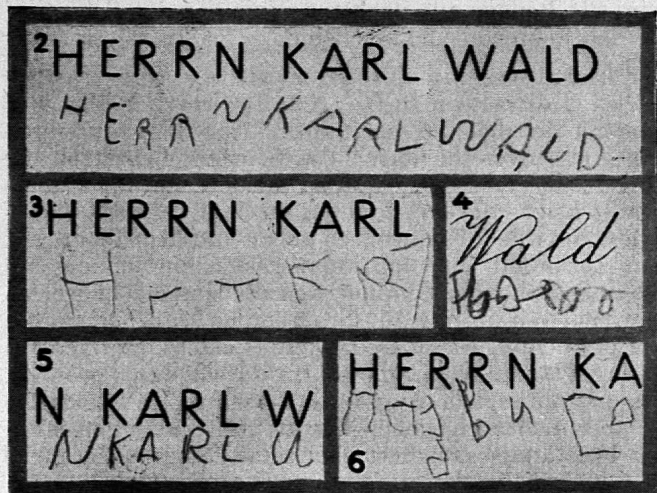 2 HERRN KARL WALD
HERRN KARL WALD
3 HERRN KARL
4
Wald
5
N KARL W
NKARL W
HERRN KA
6